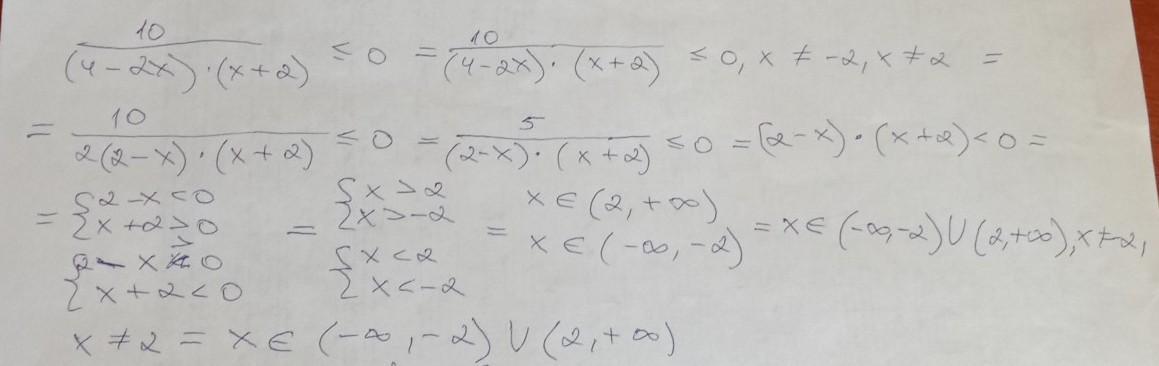 10/((4-2x)·(x+2)) ≤ 0 = 10/((4-2x)·(x+2)) ≤ 0, x ≠ -2, x ≠ 2 =
= 10/(2(2-x)·(x+2)) ≤ 0 = 5/((2-x)·(x+2)) ≤ 0 = (2-x)·(x+2) < 0 =
= { 2-x < 0 = { x > 2 = x ∈ (2, +∞) = x ∈ (-∞, -2) ∪ (2, +∞), x ≠ -2,
{ x+2 > 0 { x > -2 x ∈ (-∞, -2)
{ 2-x > 0 { x < 2
{ x+2 < 0 { x < -2
x ≠ 2 = x ∈ (-∞, -2) ∪ (2, +∞)